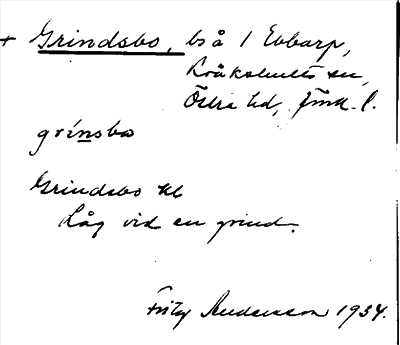 + Grindsbo, bs å 1 Ebbarp,
Kråkshults sn,
Östra hd, Jönk. l.
grinsbo
Grindsbo kl
Låg vid en grind.
Fritz Andersson 1934.